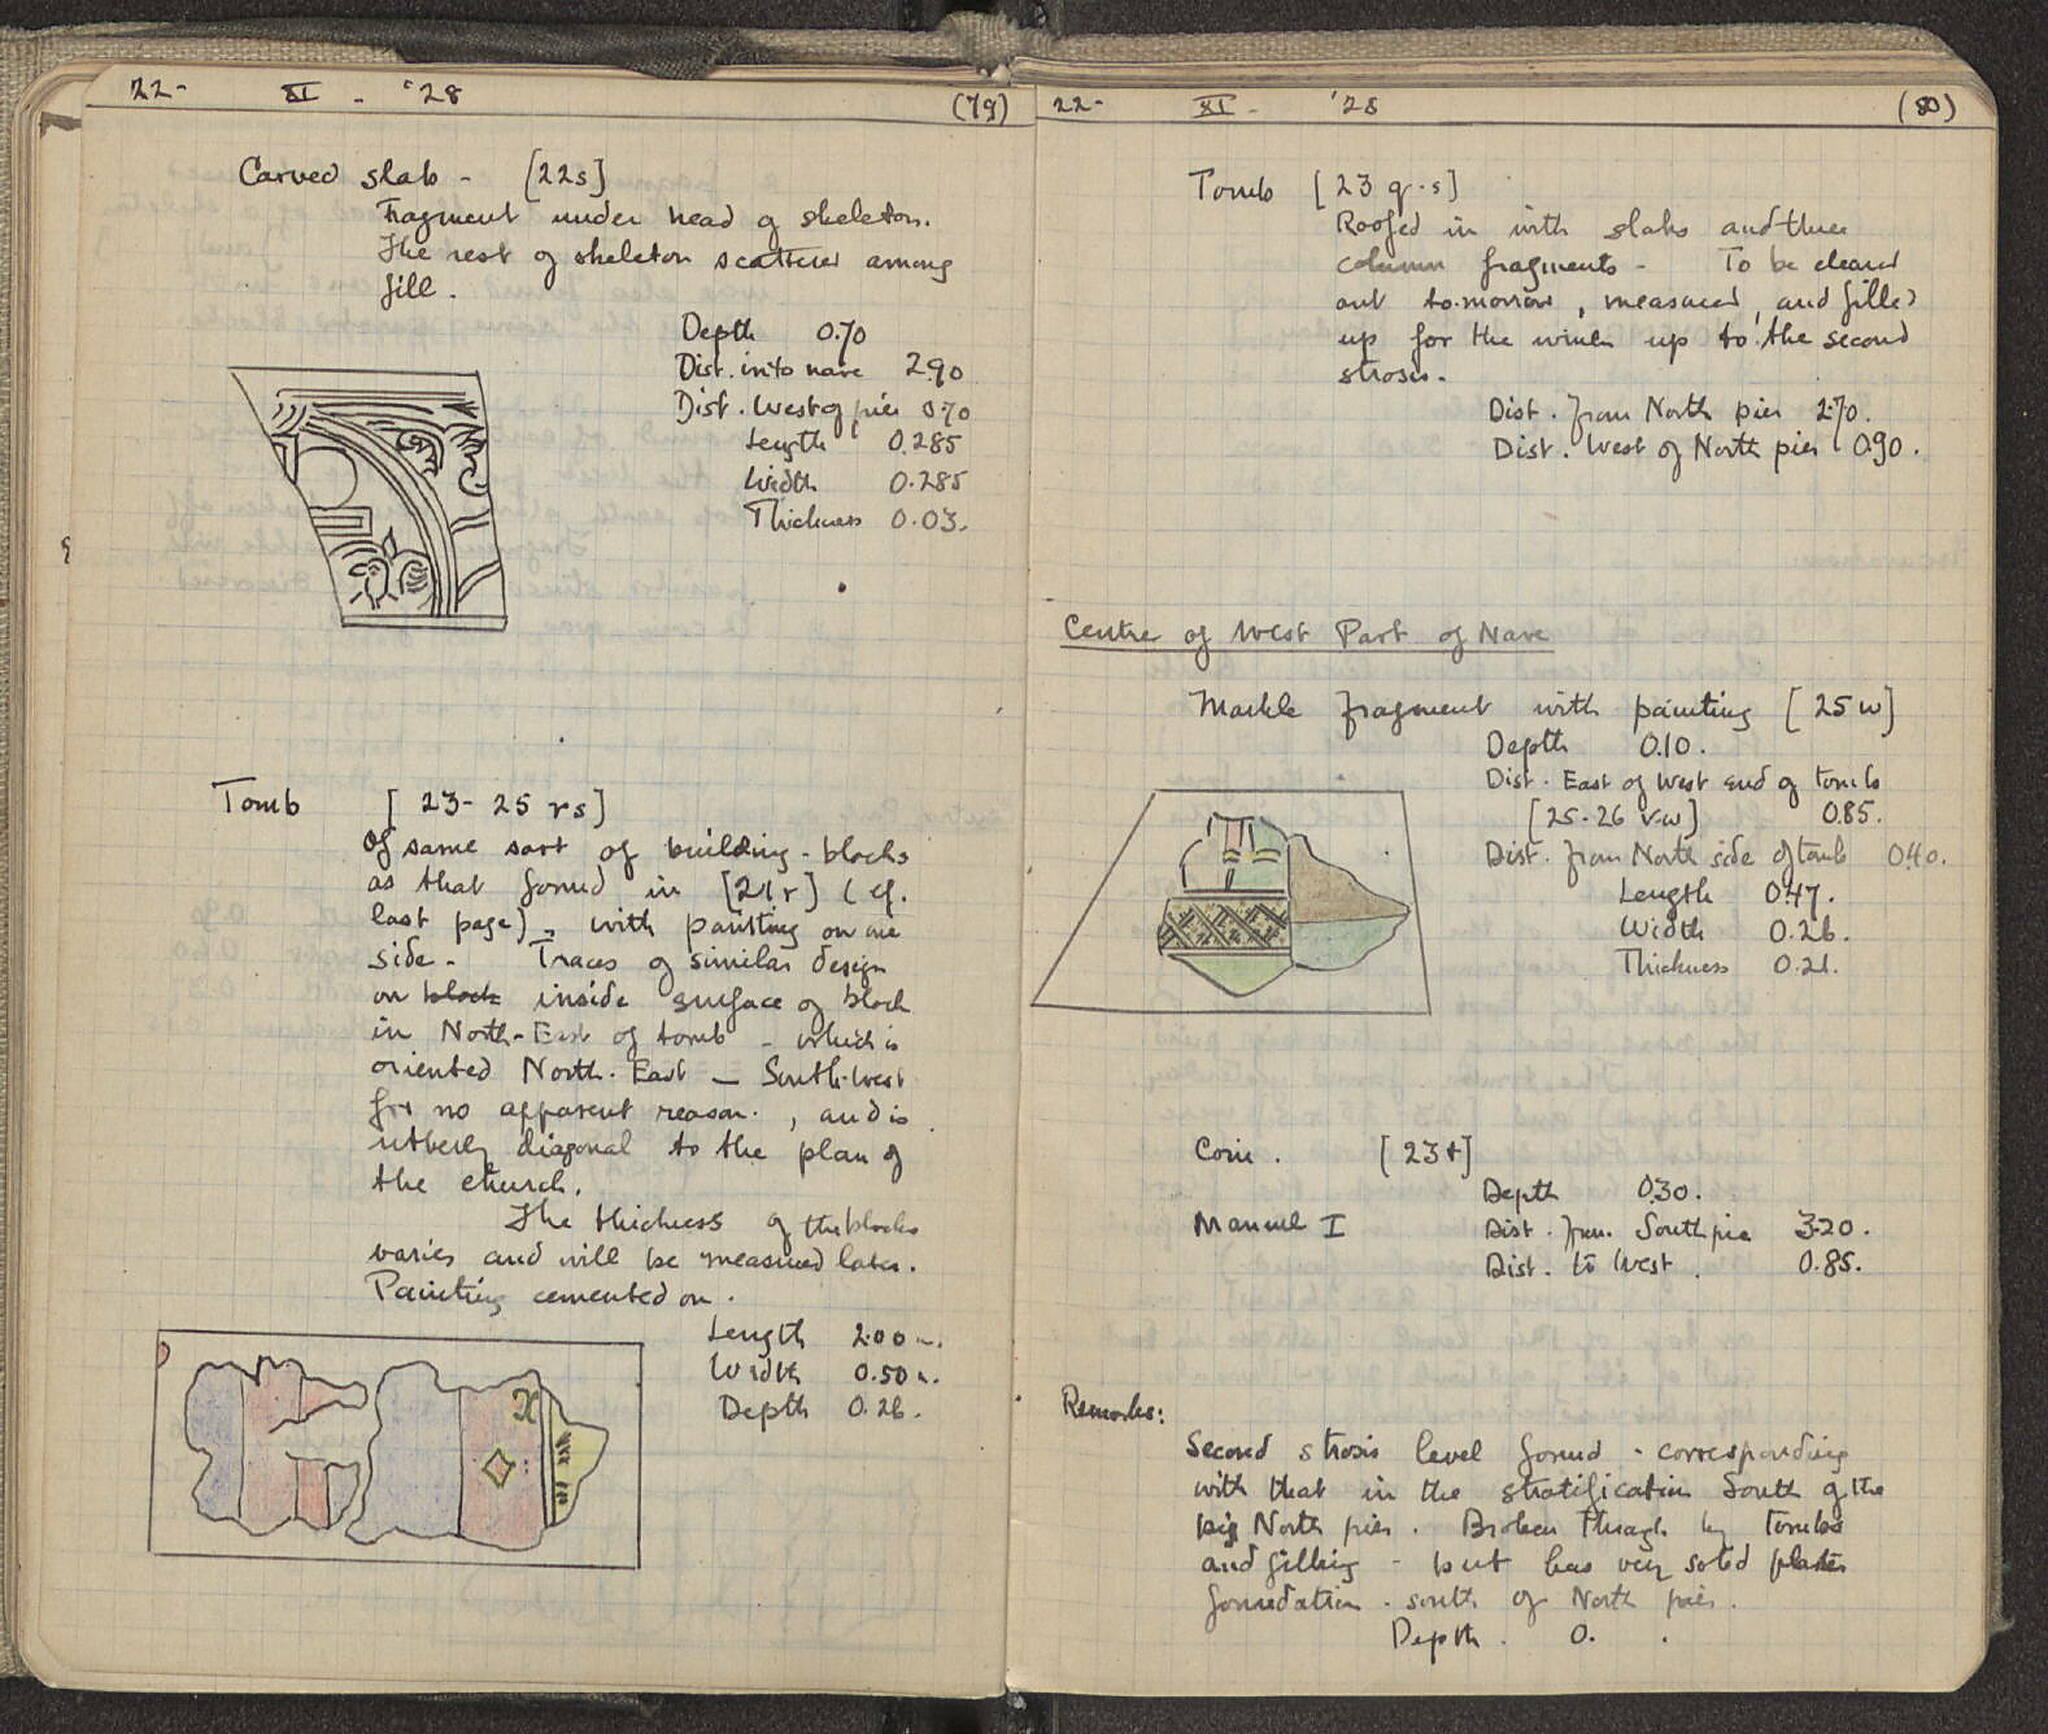 22- XI - '28 (79)
Carved slab - [22s]
Fragment under head of skeleton.
The rest of skeleton scattered among
fill.
Depth 0.70
Dist. into nave 2.90
Dist. West of pier 0.70
Length 0.285
Width 0.285
Thickness 0.03.
Tomb [23-25 rs]
Of same sort of building-blocks
as that found in [21r] (cf.
last page), with painting on one
side - Traces of similar design
on block inside surface of block
in North-East of tomb - which is
oriented North-East - South-West
for no apparent reason, and is
utterly diagonal to the plan of
the church.
The thickness of the blocks
varies and will be measured later.
Painting cemented on.
Length 2.00 m.
Width 0.50 m.
Depth 0.26.
22- XI - '28 (80)
Tomb [23 q-s]
Roofed in with slabs and three
column fragments - To be cleared
out to-morrow, measured, and filled
up for the winter up to the second
strosis.
Dist. from North pier 2.70.
Dist. West of North pier 0.90.
Centre of West Part of Nave
Marble fragment with painting [25w]
Depth 0.10.
Dist. East of West end of tomb
[25-26 v-w] 0.85.
Dist. from North side of tomb 0.40.
Length 0.47.
Width 0.26.
Thickness 0.21.
Coin. [23t]
Depth 0.30.
Manuel I Dist. from South pier 3.20.
Dist. to West. 0.85.
Remarks:
Second strosis level found - corresponding
with that in the stratification South of the
big North pier. Broken through by tombs
and filling - but has very solid plaster
foundation - south of North pier.
Depth. 0. .